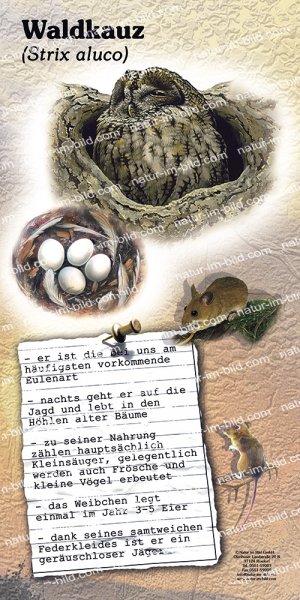 Waldkauz
(Strix aluco)
- er ist die bei uns am
häufigsten vorkommende
Eulenart
- nachts geht er auf die
Jagd und lebt in den
Höhlen alter Bäume
- zu seiner Nahrung
zählen hauptsächlich
Kleinsäuger, gelegentlich
werden auch Frösche und
kleine Vögel erbeutet
- das Weibchen legt
einmal im Jahr 3-5 Eier
- dank seines samtweichen
Federkleides ist er ein
geräuschloser Jäger
natur-im-bild.com